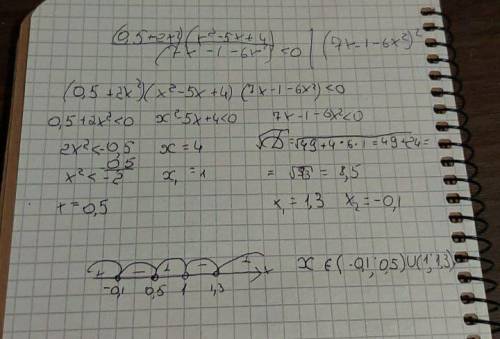 (0,5+2x²)(x²-5x+4) / (7x-1-6x²) <0 | (7x-1-6x²)²
(0,5+2x²)(x²-5x+4)(7x-1-6x²)<0
0,5+2x²<0 x²-5x+4<0 7x-1-6x²<0
2x²<-0,5 x=4 √D=√49+4·6·1=49+24=
x²<-0,5/2 x₁=1 =√73=8,5
x=0,5 x₁=1,3 x₂=-0,1
+ - + - + x x∈(-0,1;0,5)∪(1;1,3)
-0,1 0,5 1 1,3